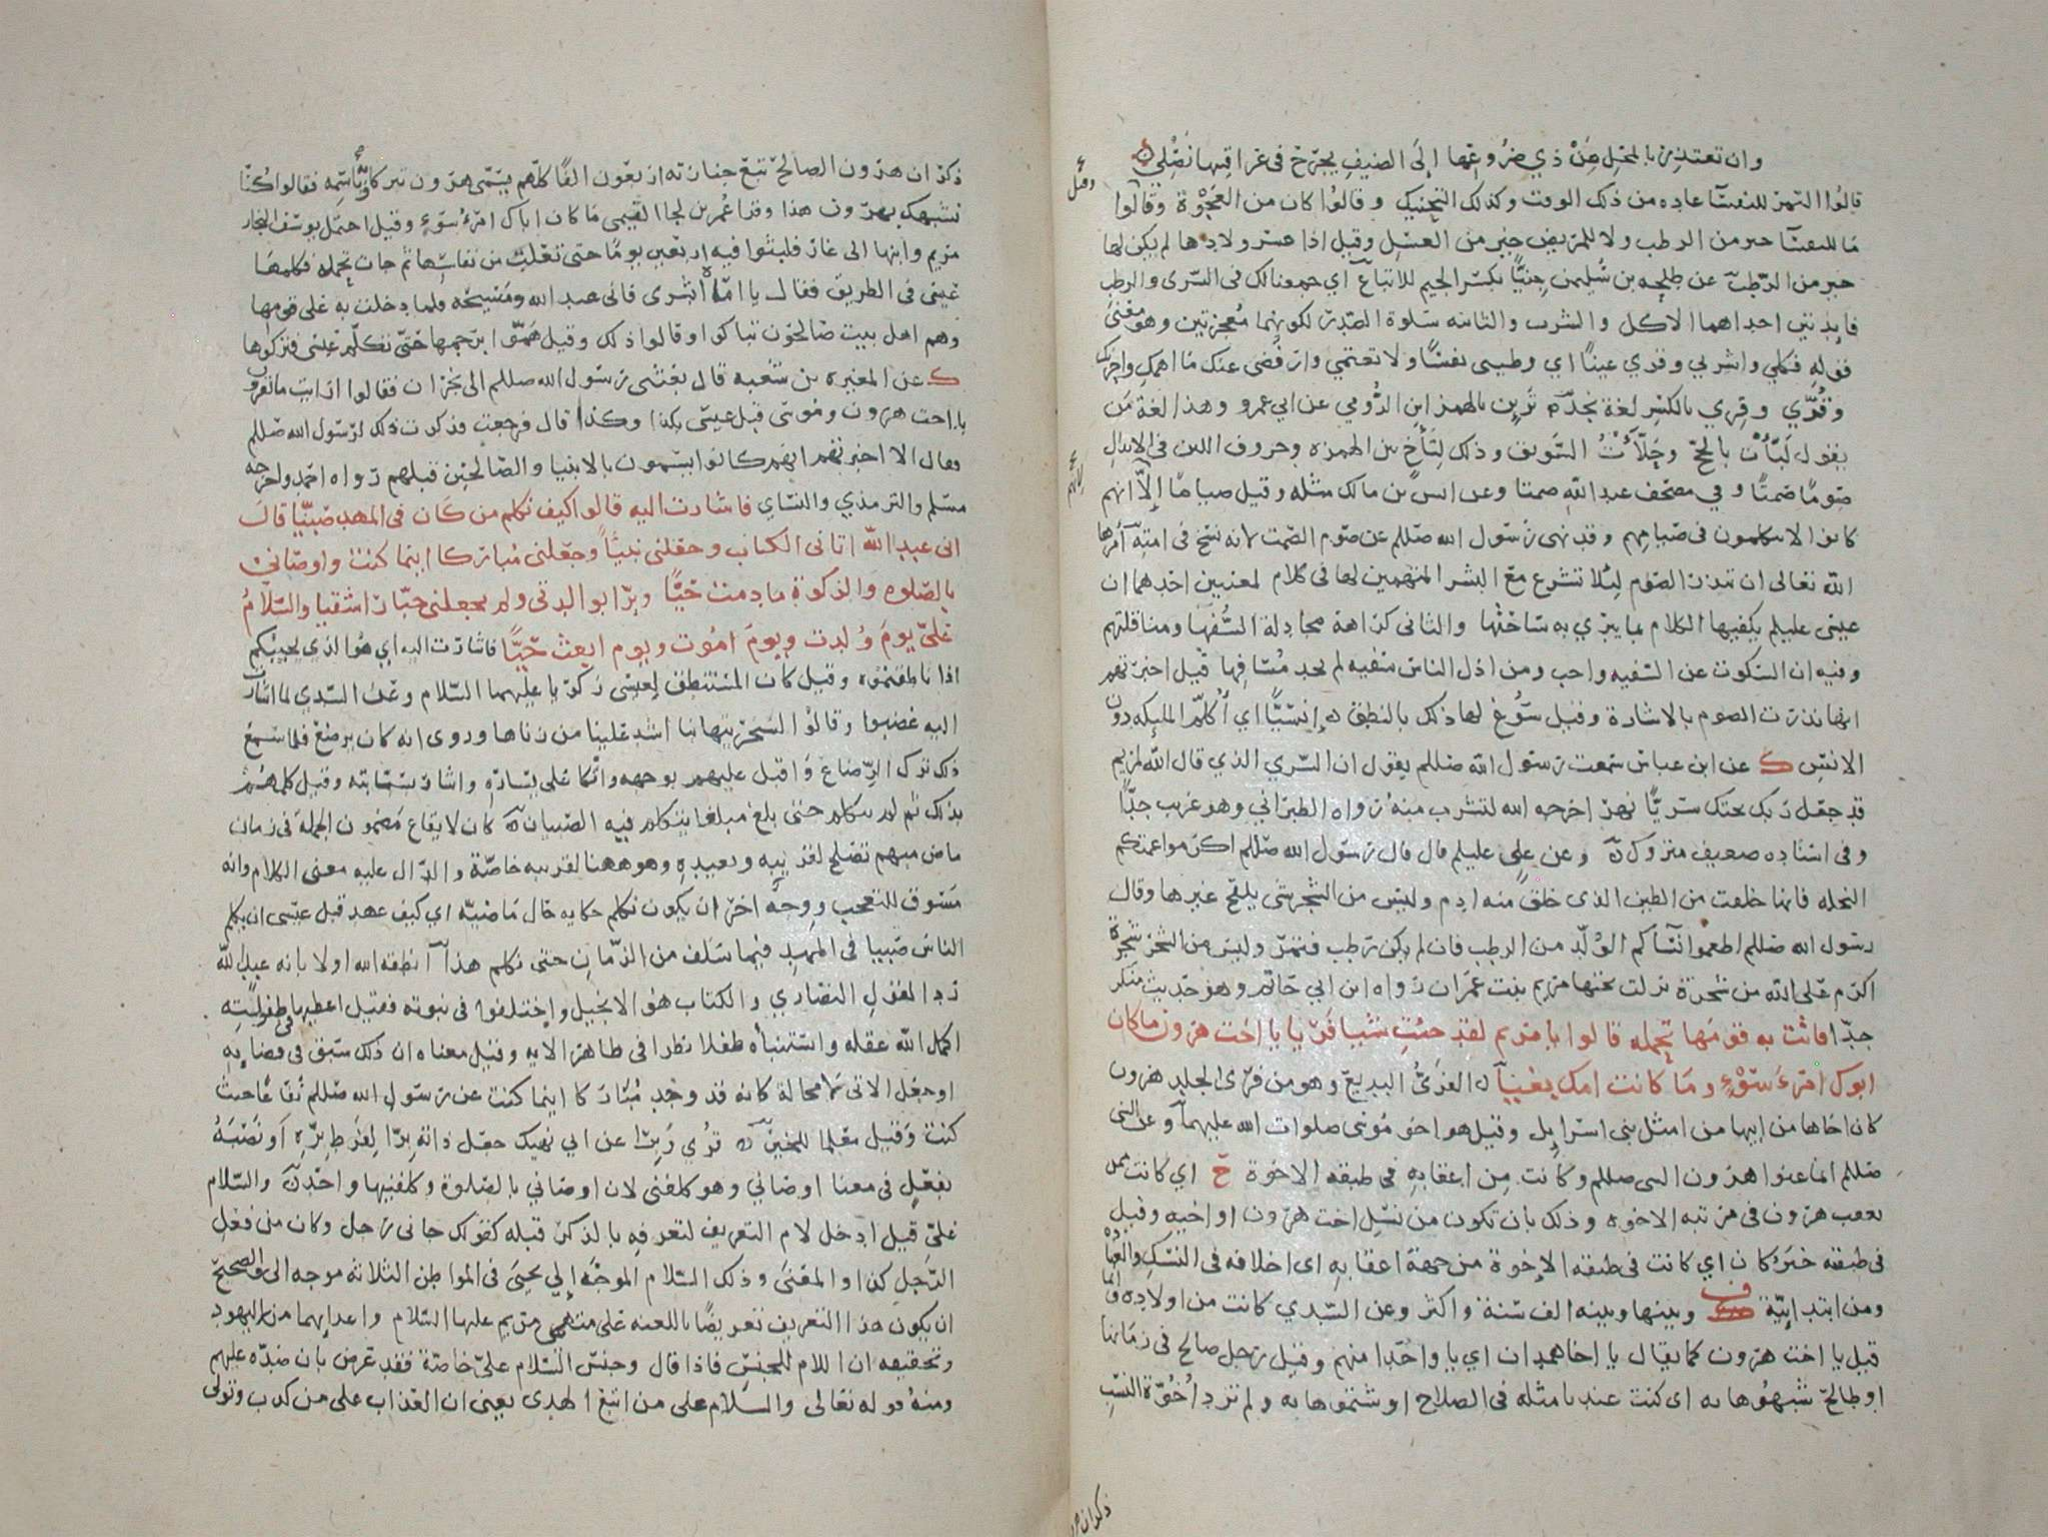 وان تعتذر بالمحل من ذي ضروعها إلى الضيف يجرح في عراقيبها نصلي
قالوا التمر للنفسا عاده من ذلك الوقت وكذلك التحنيك وقالوا كان من العجوة وقالوا
ما للنفسا خير من الرطب ولا للمريض خير من العسل وقيل اذا عسر ولادها لم يكن لها
خير من الرطب عن طلحه بن سليمن جنيًّا بكسر الجيم للاتباع اي جمعنا لك في السرى والرطب
فايدتين احداهما الاكل والشرب والثانيه سلوة الصدر لكونهما معجزتين وهو معنى
قوله فكلي واشربي وقري عينًا اي وطيبى نفسًا ولا تغتمي وارفضى عنك ما احزنك
وقرّي وقري بالكسر لغة نجد ترئن بالهمز ابن الرومي عن ابي عمرو وهذا لغة من
يقول لبّأت بالحج وحلّأت السويق وذلك لتأخ بين الهمزه وحروف اللين في الابدال
صومًا صمتًا وفي مصحف عبد الله صمتا وعن انس بن مالك مثله وقيل صيامًا إلا انهم
كانوا لا يتكلمون في صيامهم وقد نهى رسول الله صللم عن صوم الصمت لانه نسخ في امته امرها
الله تعالى ان تنذر الصوم لئلا تشرع مع البشر المتهمين لها في كلام لمعنيين احدهما ان
عيسى عليلم يكفيها الكلام بما يبري به ساحتها والثاني كراهة مجادلة السفها ومناقلتهم
وفيه ان السكوت عن السفيه واجب ومن اذل الناس سفيه لم يجد مسافها قيل اخبرتهم
انها نذرت الصوم بالاشارة وقيل سوغ لها ذلك بالنطق ه إنسيًّا اي أكلم المليكه دون
الانس ك عن ابن عباس سمعت رسول الله صللم يقول ان السري الذي قال الله لمريم
قد جعل ربك تحتك سريًّا نهر اخرجه الله لتشرب منه رواه الطبراني وهو غريب جدًّا
وفي اسناده ضعيف متروك ه وعن علي عليلم قال قال رسول الله صللم اكرموا عمتكم
النخله فانها خلقت من الطين الذى خلق منه ادم وليس من الشجر شى يلقح غيرها وقال
رسول الله صللم اطعموا نساكم الولد من الرطب فان لم يكن رطب فتمر وليس من الشجر شجرة
اكرم على الله من شجرة نزلت تحتها مريم بنت عمران رواه ابن ابي حاتم وهو حديث منكر
جدّا فاتت به قومها تحمله قالوا يا مريم لقد جئت شيا فريا يا اخت هرون ما كان
ابوك امرء سوء وما كانت امك بغيا ه الفرى البديع وهو من فرى الجلد هرون
كان اخاها من ابيها من امثل بني اسرايل وقيل هو اخو موسى صلوات الله عليهما وعن النبي
صللم انما عنوا هرون النبى صللم وكانت من اعقابه في طبقه الاخوة ح اي كانت
بعقب هرون في مرتبه الاخوه وذلك بان تكون من نسل اخت هرون او اخيه وقيل
في طبقه خبر كان اي كانت في طبقه الاخوة من جهة اعقابه اى اخلافه في النسك والعبا
ومن ابتدايية وبينها وبينه الف سنة واكثر وعن السدي كانت من اولاده وانما
قيل يا اخت هرون كما يقال يا اخا همدان اي يا واحدا منهم وقيل رجل صالح في زمانها
او طالح شبهوها به اى كنت عندنا مثله في الصلاح او شتموها به ولم ترد أخوّة النسب
ذكر ان هر
ذكر ان هرون الصالح تبع جنازته اربعون الفًا كلهم يسمى هرون تبركا به وباسمه فقالوا كنا
نشبهك بهرون هذا وقرا عمر بن لجا التيمي ما كان اباك امرء سوء وقيل احتمل يوسف النجار
مريم وابنها الى غار فلبثوا فيه اربعين يومًا حتى تعلت من نفاسها ثم جات تحمله فكلمها
عيسى في الطريق فقال يا اماه ابشرى فانى عبد الله ومسيحه فلما دخلت به على قومها
وهم اهل بيت صالحون تباكوا وقالوا ذلك وقيل همّوا برجمها حتى تكلم عيسى فتركوها
ك عن المغيره بن شعبه قال بعثنى رسول الله صللم الى نجران فقالوا ارايت ما تقرون
يا اخت هرون وموسى قبل عيسى بكذا وكذا قال فرجعت فذكرت ذلك لرسول الله صللم
فقال الا اخبرتهم انهم كانوا يسمون بالانبيا والصالحين قبلهم رواه احمد واخرجه
مسلم والترمذي والنساي فاشارت اليه قالوا كيف نكلم من كان في المهد صبيًّا قال
انى عبد الله اتانى الكتاب وجعلنى نبيًّا وجعلنى مباركا اينما كنت واوصانى
بالصلوه والزكوة ما دمت حيًّا وبرًّا بوالدتى ولم يجعلنى جبارا شقيا والسلام
علىّ يوم ولدت ويوم اموت ويوم ابعث حيًّا فاشارت اليه اي هو الذي يجيبكم
اذا ناطقتموه وقيل كان المستنطق لعيسى زكريا عليهما السلام وعن السدي لما اشارت
اليه غضبوا وقالوا لسخريتها بنا اشد علينا من زناها وروى انه كان يرضع فلما سمع
ذلك ترك الرضاع واقبل عليهم بوجهه واتكا على يساره واشار بسبابته وقيل كلمهم
بذلك ثم لم يتكلم حتى بلغ مبلغا يتكلم فيه الصبيان ه كان لايقاع مضمون الجملة في زمان
ماض مبهم تصلح لقريبه وبعيده وهو ههنا لقريبه خاصّة والدال عليه معنى الكلام وانه
مسوق للتعجب ووجه اخر ان يكون نكلم حكايه حال ماضيه اي كيف عهد قبل عيسى ان يكلم
الناس صبيا في المهد فيما سلف من الزمان حتى نكلم هذا انطقه الله اولا بانه عبد الله
ردا لقول النصاري والكتاب هو الانجيل واختلفوا في نبوته فقيل اعطيها في طفوليته
اكمل الله عقله واستنبأه طفلا نظرا في ظاهر الايه وقيل معناه ان ذلك سبق في قضايه
او جعل الاتى لا محالة كانه قد وجد مباركا اينما كنت عن رسول الله صللم نفاعًا حيث
كنت وقيل معلما للخير ه قري وبرًّا عن ابي نهيك جعل ذاته برًّا لفرط بره او نصبه
بفعل في معنا اوصاني وهو كلفنى لان اوصاني بالصلوة وكلفنيها واحد ه والسلام
علىّ قيل ادخل لام التعريف لتعرفه بالذكر قبله كقولك جانى رجل وكان من فعل
الرجل كذا والمعنى وذلك السلام الموجه إلى يحيى في المواطن الثلاثه موجه الى والصحيح
ان يكون هذا التعريف تعريضًا باللعنه على متهمى مريم عليها السلام واعدايهما من اليهود
وتحقيقه ان اللام للجنس فاذا قال وجنس السلام علىّ خاصّة فقد عرض بان ضده عليهم
ومنه قوله تعالى والسلام على من اتبع الهدى يعنى ان العذاب على من كذب وتولى